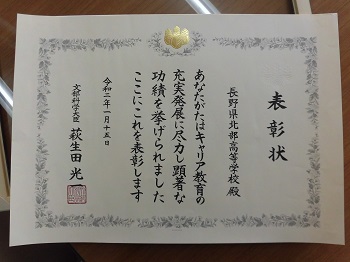 表彰状
長野県北部高等学校殿
あなたがたはキャリア教育の
充実発展に尽力し顕著な
功績を挙げられました
ここにこれを表彰します
令和二年一月十五日
文部科学大臣 萩生田光一